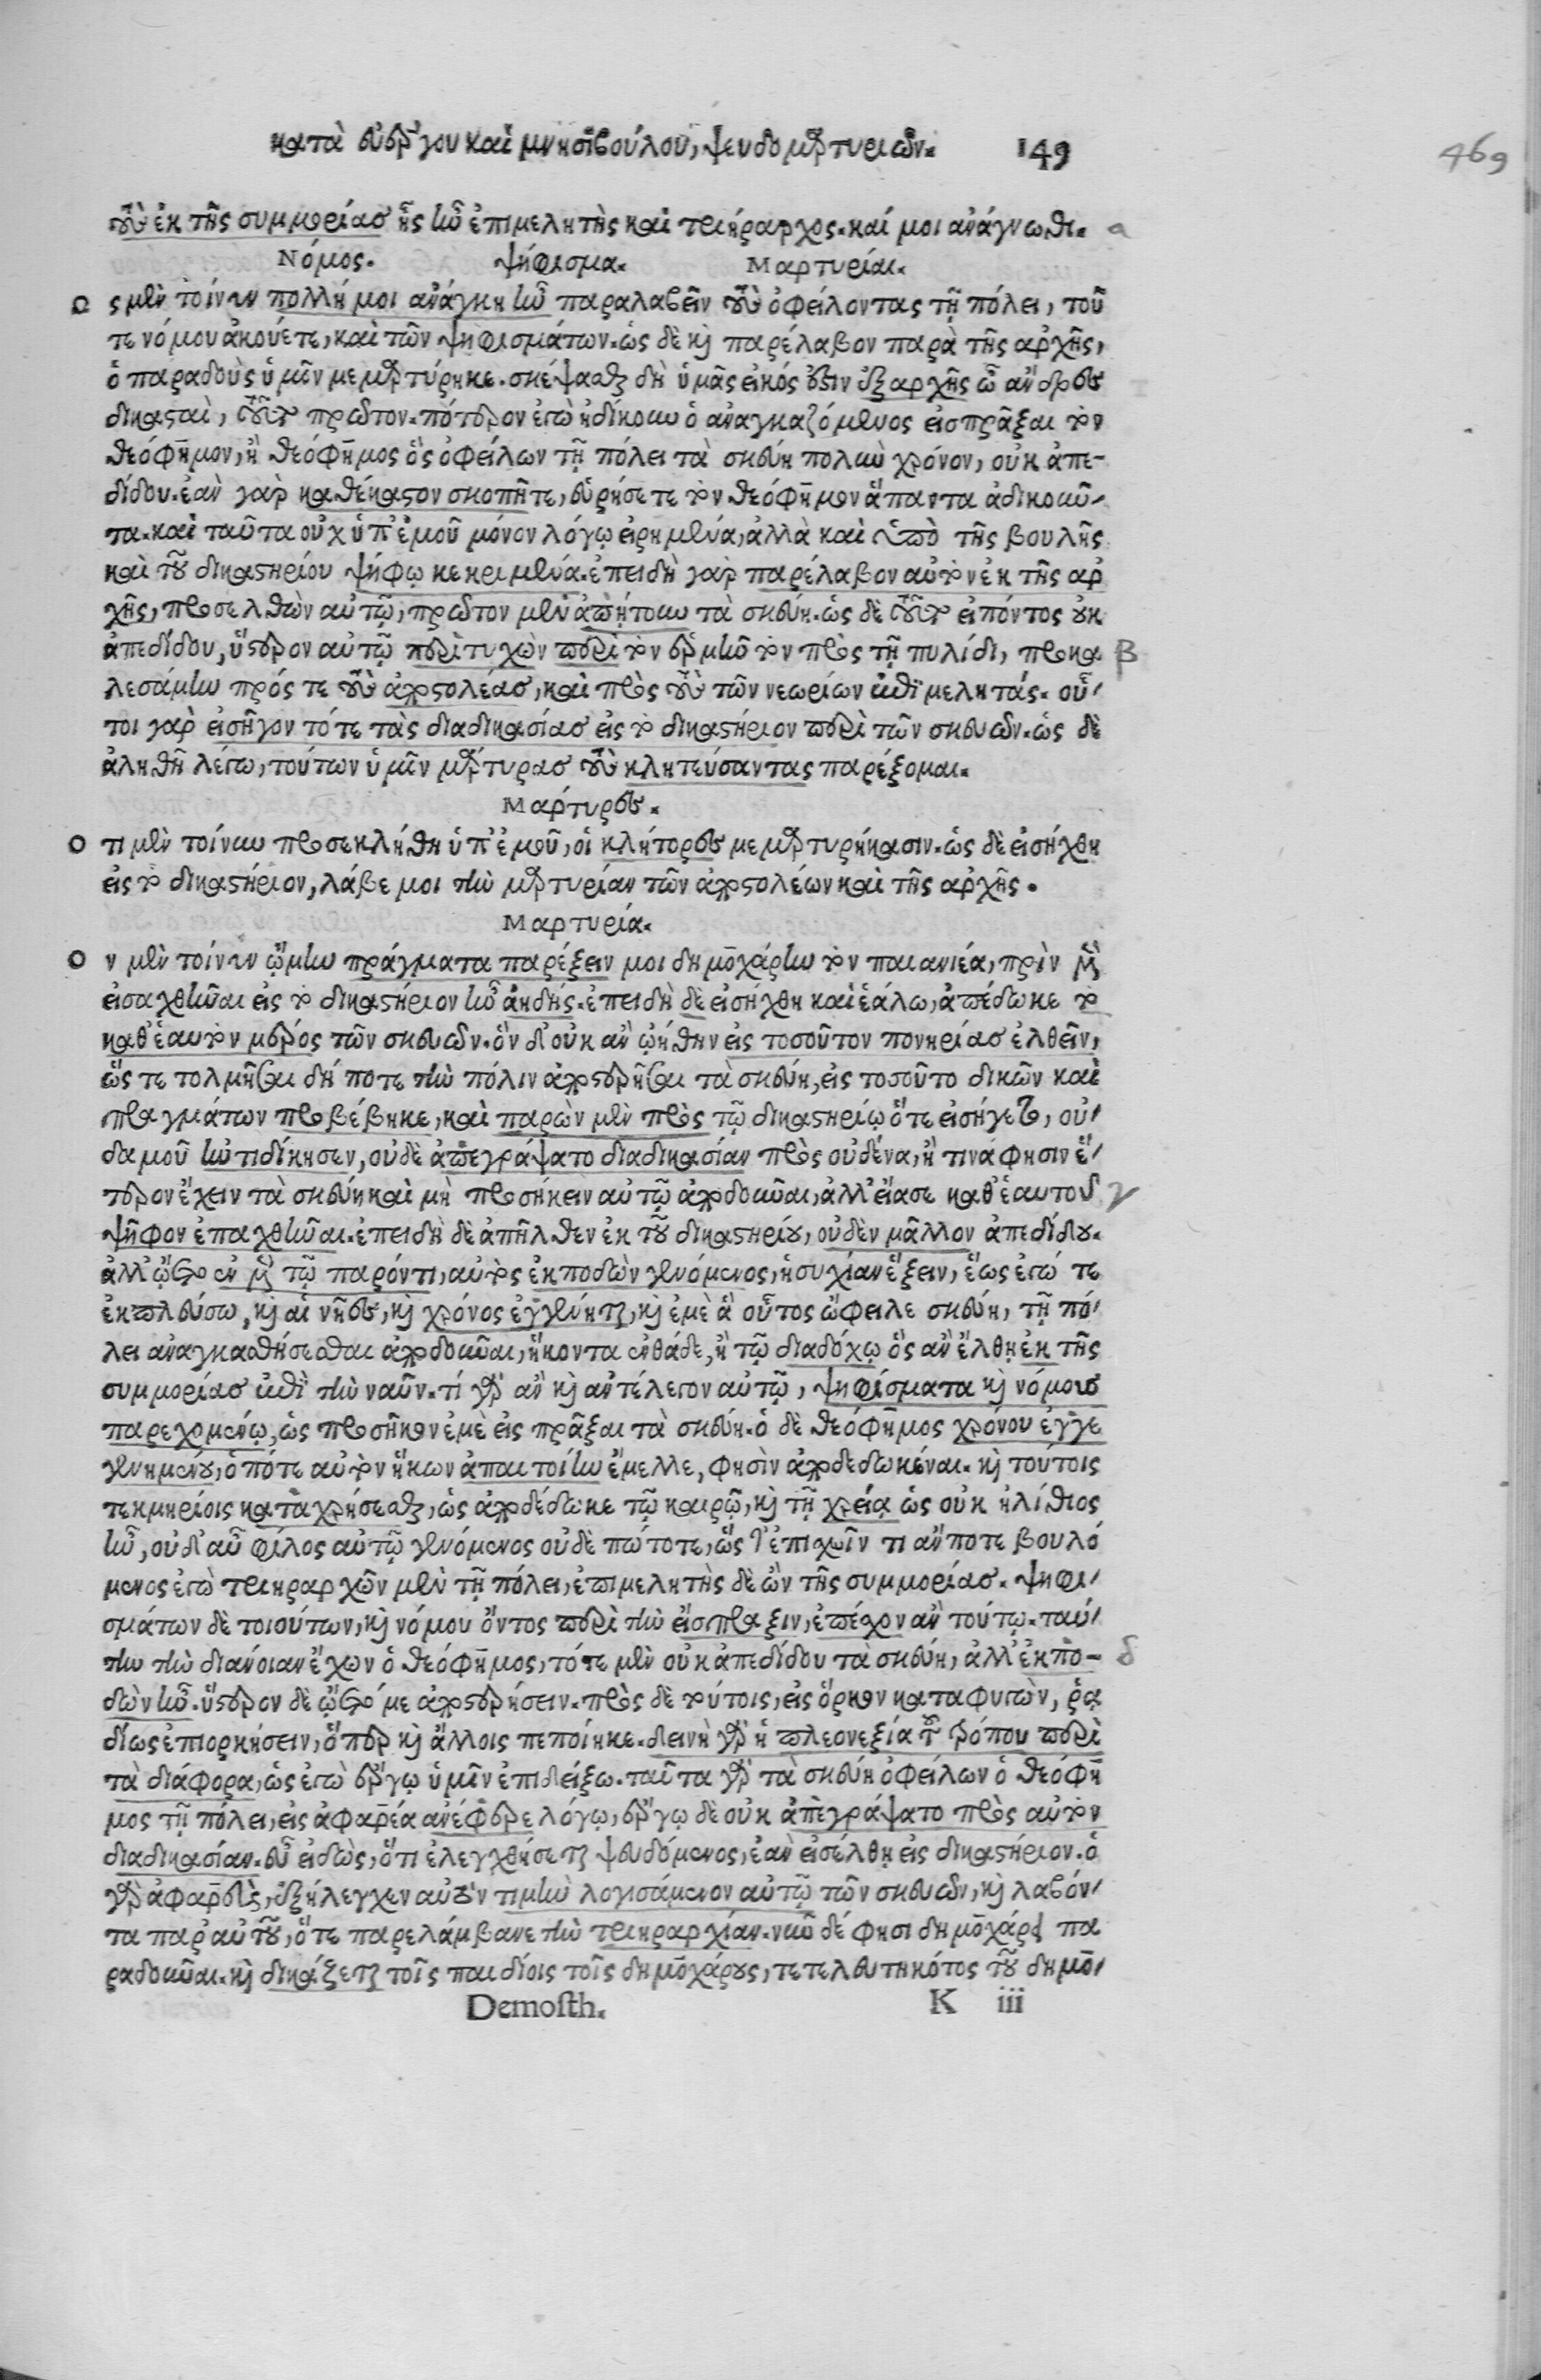 κατὰ εὐέργου καὶ μνησιβούλου, ψευδομαρτυριῶν. 149
469
τοὺς ἐκ τῆς συμμορίας ἧς ἦν ἐπιμελητὴς καὶ τριήραρχος. καί μοι ἀνάγνωθι. α
Νόμος. ψήφισμα. Μαρτυρίαι.
Ως μὲν τοίνυν πολλή μοι ἀνάγκη ἦν παραλαβεῖν τοὺς ὀφείλοντας τῇ πόλει, τοῦ
τε νόμου ἀκούετε, καὶ τῶν ψηφισμάτων. ὡς δὲ καὶ παρέλαβον παρὰ τῆς ἀρχῆς,
ὁ παραδοὺς ὑμῖν μεμαρτύρηκε. σκέψασθαι δὴ ὑμᾶς εἰκός ἐστιν ἐξαρχῆς ὦ ἄνδρες
δικασταὶ, τοῦτο πρῶτον. πότερον ἐγὼ ἠδίκουν ὁ ἀναγκαζόμενος εἰσπρᾶξαι τὸν
θεόφημον, ἢ θεόφημος ὃς ὀφείλων τῇ πόλει τὰ σκεύη πολὺν χρόνον, οὐκ ἀπε-
δίδου. ἐὰν γὰρ καθέκαστον σκοπῆτε, εὑρήσετε τὸν θεόφημον ἅπαντα ἀδικοῦν
τα. καὶ ταῦτα οὐχ ὑπ' ἐμοῦ μόνον λόγῳ εἰρημένα, ἀλλὰ καὶ ὑπὸ τῆς βουλῆς
καὶ τοῦ δικαστηρίου ψήφῳ κεκριμένα. ἐπειδὴ γὰρ παρέλαβον αὐτὸν ἐκ τῆς ἀρ
χῆς, προσελθὼν αὐτῷ, πρῶτον μὲν ἀπῄτουν τὰ σκεύη. ὡς δὲ τοῦτο εἰπόντος οὐκ
ἀπεδίδου, ὕστερον αὐτῷ περιτυχὼν περὶ τὸν ἑρμῆν τὸν πρὸς τῇ πυλίδι, προκα β
λεσάμην πρός τε τοὺς ἀποστολέας, καὶ πρὸς τοὺς τῶν νεωρίων ἐπιμελητάς. οὗ
τοι γὰρ εἰσῆγον τότε τὰς διαδικασίας εἰς τὸ δικαστήριον περὶ τῶν σκευῶν. ὡς δὲ
ἀληθῆ λέγω, τούτων ὑμῖν μάρτυρας τοὺς κλητεύσαντας παρέξομαι.
Μάρτυρες.
Οτι μὲν τοίνυν προσεκλήθη ὑπ' ἐμοῦ, οἱ κλήτορες μεμαρτυρήκασιν. ὡς δὲ εἰσήχθη
εἰς τὸ δικαστήριον, λάβε μοι τὴν μαρτυρίαν τῶν ἀποστολέων καὶ τῆς ἀρχῆς.
Μαρτυρία.
Ον μὲν τοίνυν ᾤμην πράγματα παρέξειν μοι δημοχάρην τὸν παιανιέα, πρὶν μὲν
εἰσαχθῆναι εἰς τὸ δικαστήριον ἦν ἀηδής. ἐπειδὴ δὲ εἰσήχθη καὶ ἑάλω, ἀπέδωκε τὸ
καθ' ἑαυτὸν μέρος τῶν σκευῶν. ὃν δ' οὐκ ἂν ᾠήθην εἰς τοσοῦτον πονηρίας ἐλθεῖν,
ὥς τε τολμῆσαι δή ποτε τὴν πόλιν ἀποστερῆσαι τὰ σκεύη, εἰς τοσοῦτο δικῶν καὶ
πραγμάτων προβέβηκε, καὶ παρὼν μὲν πρὸς τῷ δικαστηρίῳ ὅτε εἰσήγετο, οὐ
δαμοῦ ἠντιδίκησεν, οὐδὲ ἀπεγράψατο διαδικασίαν πρὸς οὐδένα, ἤ τινά φησιν ἕ
τερον ἔχειν τὰ σκεύη καὶ μὴ προσήκειν αὐτῷ ἀποδοῦναι, ἀλλ' εἴασε καθ' ἑαυτοῦ γ
ψῆφον ἐπαχθῆναι. ἐπειδὴ δὲ ἀπῆλθεν ἐκ τοῦ δικαστηρίου, οὐδὲν μᾶλλον ἀπεδίδου.
ἀλλ' ᾤετο ἐν μὲν τῷ παρόντι, αὐτὸς ἐκποδὼν γενόμενος, ἡσυχίαν ἕξειν, ἕως ἐγώ τε
ἐκπλεύσω, καὶ αἱ νῆες, καὶ χρόνος ἐγγένηται, καὶ ἐμὲ ἃ οὗτος ὤφειλε σκεύη, τῇ πό
λει ἀναγκασθήσεσθαι ἀποδοῦναι, ἥκοντα ἐνθάδε, ἢ τῷ διαδόχῳ ὃς ἂν ἔλθῃ ἐκ τῆς
συμμορίας ἐπὶ τὴν ναῦν. τί γὰρ ἂν καὶ ἀντέλεγον αὐτῷ, ψηφίσματα καὶ νόμους
παρεχομένῳ, ὡς προσῆκον ἐμὲ εἰς πρᾶξαι τὰ σκεύη. ὁ δὲ θεόφημος χρόνου ἐγγε
γενημένου, ὁπότε αὐτὸν ἥκων ἀπαιτοίην ἔμελλε, φησὶν ἀποδεδωκέναι. καὶ τούτοις
τεκμηρίοις καταχρήσεσθαι, ὡς ἀποδέδωκε τῷ καιρῷ, καὶ τῇ χρείᾳ ὡς οὐκ ἠλίθιος
ἦν, οὐδ' αὖ φίλος αὐτῷ γενόμενος οὐδὲ πώποτε, ὥς τ' ἐπισχεῖν τι ἄν ποτε βουλό
μενος ἐγὼ τριηραρχῶν μὲν τῇ πόλει, ἐπιμελητὴς δὲ ὢν τῆς συμμορίας. ψηφι
σμάτων δὲ τοιούτων, καὶ νόμου ὄντος περὶ τὴν εἴσπραξιν, ἐπέσχον ἂν τούτῳ. ταύ
την τὴν διάνοιαν ἔχων ὁ θεόφημος, τότε μὲν οὐκ ἀπεδίδου τὰ σκεύη, ἀλλ' ἐκπο- δ
δὼν ἦν. ὕστερον δὲ ᾤετό με ἀποστερήσειν. πρὸς δὲ τούτοις, εἰς ὅρκον καταφυγὼν, ῥᾳ
δίως ἐπιορκήσειν, ὅπερ καὶ ἄλλοις πεποίηκε. δεινὴ γὰρ ἡ πλεονεξία τοῦ τρόπου περὶ
τὰ διάφορα, ὡς ἐγὼ ἔργῳ ὑμῖν ἐπιδείξω. ταῦτα γὰρ τὰ σκεύη ὀφείλων ὁ θεόφη
μος τῇ πόλει, εἰς ἀφαρέα ἀνέφερε λόγῳ, ἔργῳ δὲ οὐκ ἀπεγράψατο πρὸς αὐτὸν
διαδικασίαν. εὖ εἰδὼς, ὅτι ἐλεγχθήσεται ψευδόμενος, ἐὰν εἰσέλθῃ εἰς δικαστήριον. ὁ
γὰρ ἀφαρεὺς, ἐξήλεγχεν αὐτὸν τιμὴν λογισάμενον αὐτῷ τῶν σκευῶν, καὶ λαβόν
τα παρ' αὐτοῦ, ὅτε παρελάμβανε τὴν τριηραρχίαν. νῦν δέ φησι δημοχάρει πα
ραδοῦναι. καὶ δικάζεται τοῖς παιδίοις τοῖς δημοχάρους, τετελευτηκότος τοῦ δημο
Demosth. K iii